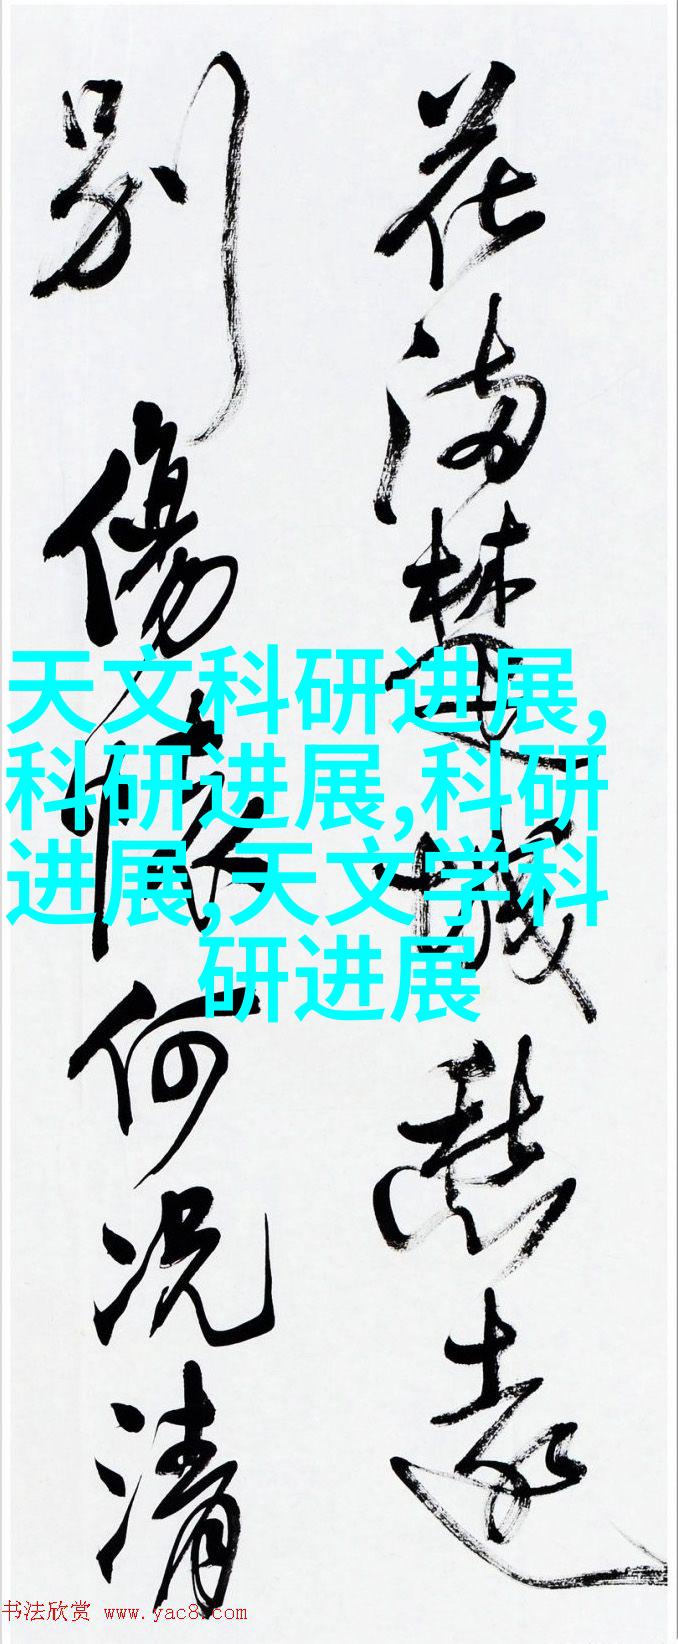 花满楚城愁远
别伤怀何况清
天文科研进展,
科研进展,科研
进展,天文学科
研进展
书法欣赏 www.yac8.com